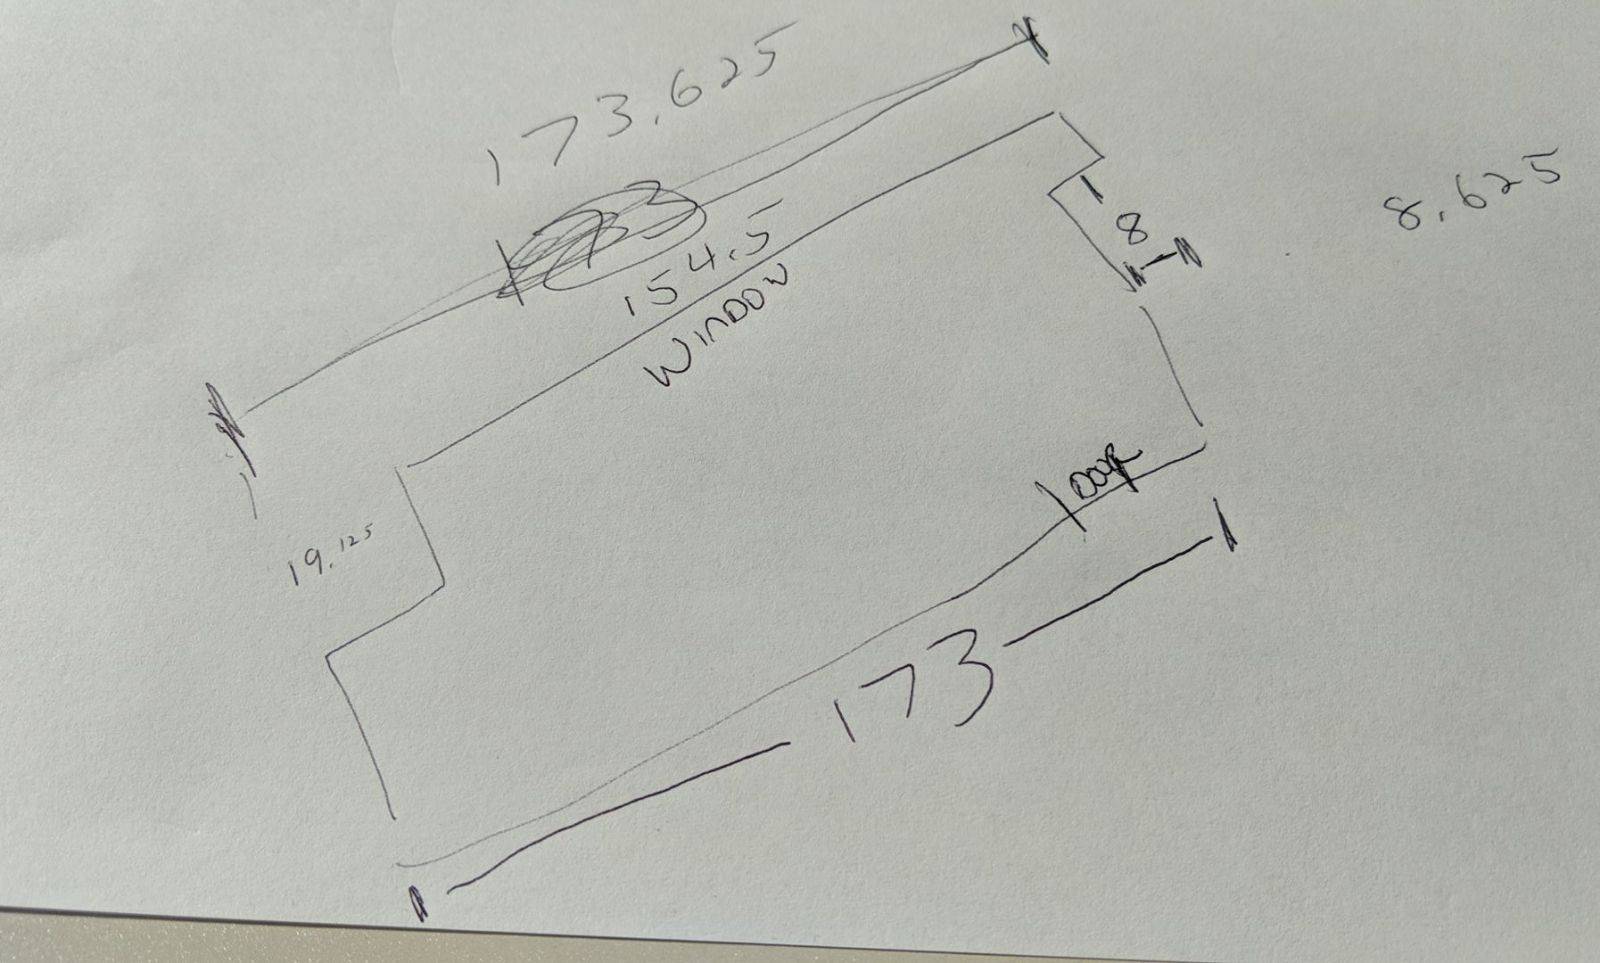 19.125
173.625
154.5
WINDOW
173
DOOR
8
8.625